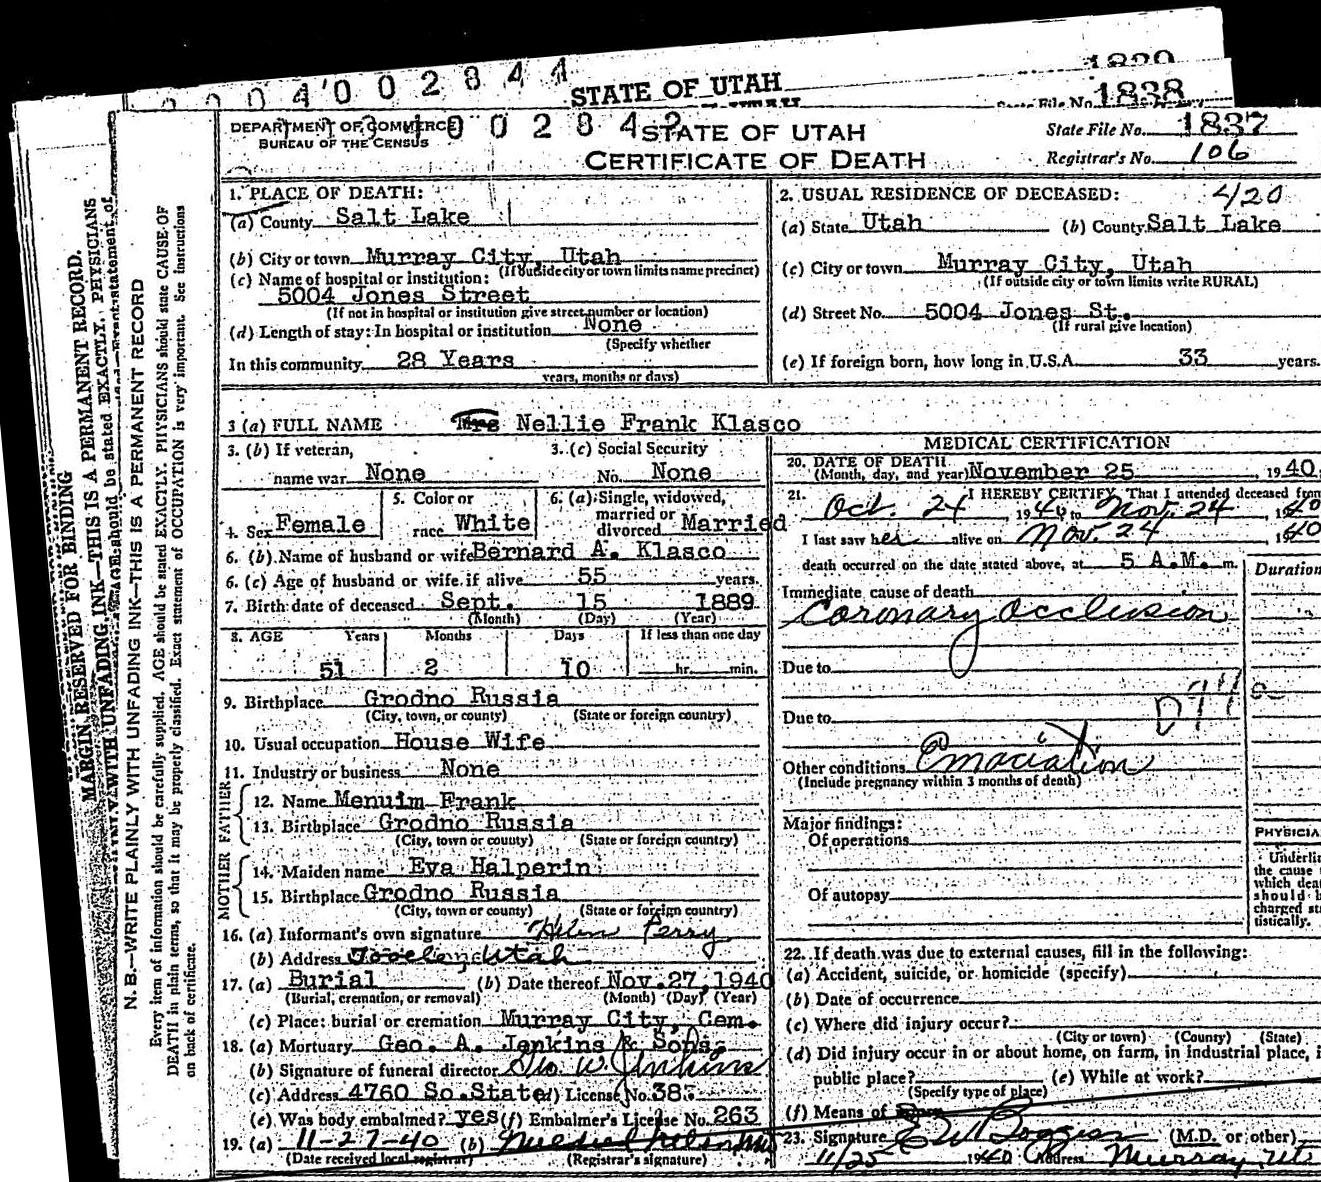 1839
0 0 4 0 0 2 8 4 4
STATE OF UTAH
State File No. 1838
DEPARTMENT OF COMMERCE
BUREAU OF THE CENSUS
0 0 2 8 4 2
STATE OF UTAH
CERTIFICATE OF DEATH
State File No. 1837
Registrar's No. 106
MARGIN RESERVED FOR BINDING
N. B.—WRITE PLAINLY WITH UNFADING INK—THIS IS A PERMANENT RECORD
Every item of information should be carefully supplied. AGE should be stated EXACTLY. PHYSICIANS should state CAUSE OF
DEATH in plain terms, so that it may be properly classified. Exact statement of OCCUPATION is very important. See instructions
on back of certificate.
1. PLACE OF DEATH:
(a) County Salt Lake
(b) City or town Murray City, Utah
(If outside city or town limits name precinct)
(c) Name of hospital or institution:
5004 Jones Street
(If not in hospital or institution give street number or location)
(d) Length of stay: In hospital or institution None
(Specify whether
In this community 28 Years
years, months or days)
2. USUAL RESIDENCE OF DECEASED: 420
(a) State Utah (b) County Salt Lake
(c) City or town Murray City, Utah
(If outside city or town limits write RURAL)
(d) Street No. 5004 Jones St.
(If rural give location)
(e) If foreign born, how long in U.S.A. 33 years.
3 (a) FULL NAME Mrs Nellie Frank Klasco
3. (b) If veteran,
name war None
3. (c) Social Security
No. None
4. Sex Female
5. Color or
race White
6. (a) Single, widowed,
married or
divorced Married
6. (b) Name of husband or wife Bernard A. Klasco
6. (c) Age of husband or wife if alive 55 years.
7. Birth date of deceased Sept. 15 1889
(Month) (Day) (Year)
8. AGE Years Months Days If less than one day
51 2 10 hr. min.
9. Birthplace Grodno Russia
(City, town, or county) (State or foreign country)
10. Usual occupation House Wife
11. Industry or business None
FATHER
12. Name Menuim Frank
13. Birthplace Grodno Russia
(City, town or county) (State or foreign country)
MOTHER
14. Maiden name Eva Halperin
15. Birthplace Grodno Russia
(City, town or county) (State or foreign country)
16. (a) Informant's own signature Helen Perry
(b) Address Tooele Utah
17. (a) Burial (b) Date thereof Nov. 27, 1940
(Burial, cremation, or removal) (Month) (Day) (Year)
(c) Place: burial or cremation Murray City, Cem.
18. (a) Mortuary Geo. A. Jenkins & Sons.
(b) Signature of funeral director Geo W Jenkins
(c) Address 4760 So. State (d) License No. 383
(e) Was body embalmed? yes (f) Embalmer's License No. 263
19. (a) 11-27-40 (b)
(Date received local registrar) (Registrar's signature)
MEDICAL CERTIFICATION
20. DATE OF DEATH
(Month, day, and year) November 25, 1940
21. I HEREBY CERTIFY, That I attended deceased from
Oct. 24 1940 to Nov. 24, 1940
I last saw her alive on Nov. 24 1940
death occurred on the date stated above, at 5 A.M. m.
Duration
Immediate cause of death
Coronary Occlusion
Due to
Due to
Other conditions Emaciation
(Include pregnancy within 3 months of death)
Major findings:
Of operations
Of autopsy
PHYSICIA
Underlin
the cause
which deat
should b
charged sta
tistically.
22. If death was due to external causes, fill in the following:
(a) Accident, suicide, or homicide (specify)
(b) Date of occurrence
(c) Where did injury occur?
(City or town) (County) (State)
(d) Did injury occur in or about home, on farm, in industrial place, i
public place? (e) While at work?
(Specify type of place)
(f) Means of injury
23. Signature (M.D. or other)
11/25 1940 Address Murray, Ut